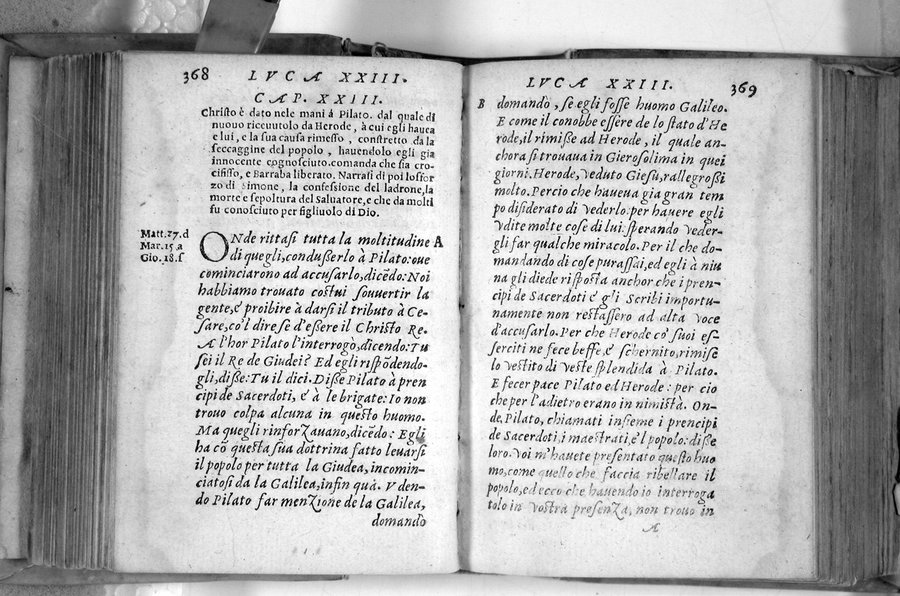 368
LVCA XXIII.
CAP. XXIII.
Christo è dato nele mani à Pilato. dal quale di
nuouo riceuutolo da Herode, à cui egli hauea
e lui, e la sua causa rimesso, constretto da la
seccaggine del popolo, hauendolo egli gia
innocente cognosciuto comanda che sia cro-
cifisso, e Barraba liberato. Narrasi di poi lo sfor
zo di Simone, la confessione del ladrone, la
morte e sepoltura del Saluatore, e che da molti
fu conosciuto per figliuolo di Dio.
Matt. 27. d
Mar. 15. a
Gio. 18. f
ONde rittasi tutta la moltitudine A
di quegli, condußerlo à Pilato: oue
cominciarono ad accusarlo, dicẽdo: Noi
habbiamo trouato costui souuertir la
gente, e' proibire à darsi il tributo à Ce-
sare, co'l dire se d'eßere il Christo Re
A l'hor Pilato l'interrogò, dicendo: Tu
sei il Re de Giudei? Ed egli rispõdendo-
gli, diße: Tu il dici. Diße Pilato à pren
cipi de Sacerdoti, e' à le brigate: Io non
trouo colpa alcuna in questo huomo.
Ma quegli rinforzauano, dicẽdo: Egli
ha cõ questa sua dottrina fatto leuarsi
il popolo per tutta la Giudea, incomin-
ciatosi da la Galilea, infin quà. Vden-
do Pilato far menzione de la Galilea,
domandò
LVCA XXIII.
369
B domandò, se egli fosse huomo Galileo.
E come il conobbe essere de lo stato d'He
rode, il rimiße ad Herode, il quale an-
chora si trouaua in Gierosolima in quei
giorni. Herode, veduto Giesu, rallegroßi
molto. Percio che haueua gia gran tem
po disiderato di vederlo: per hauere egli
vdite molte cose di lui: sperando veder-
gli far qualche miracolo. Per il che do-
mandando di cose puraßai, ed egli à niu
na gli diede risposta anchor che i pren-
cipi de Sacerdoti e' gli Scribi importu-
namente non restassero ad alta voce
d'accusarlo. Per che Herode co' suoi es-
serciti ne fece beffe, e' schernito, rimise
lo vestito di veste splendida à Pilato.
E fecer pace Pilato ed Herode: per cio
che per l'adietro erano in nimistà. On-
de Pilato, chiamati insieme i prencipi
de Sacerdoti, i maestrati, e'l popolo: diße
loro. Voi m'hauete presentato questo huo
mo, come quello che faccia ribellare il
popolo, ed ecco che hauendo io interroga
tolo in vostra presenza, non trouo in
A